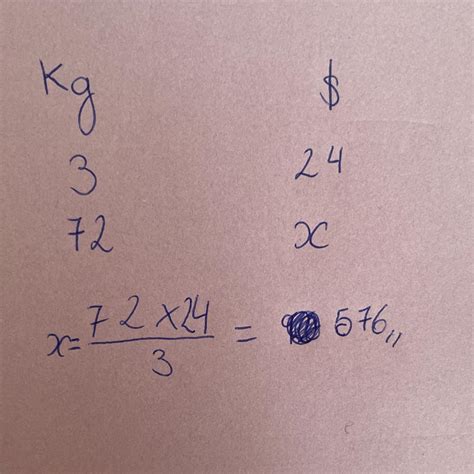 Kg $
3 24
72 x
x= 72 x24 / 3 = 576,,